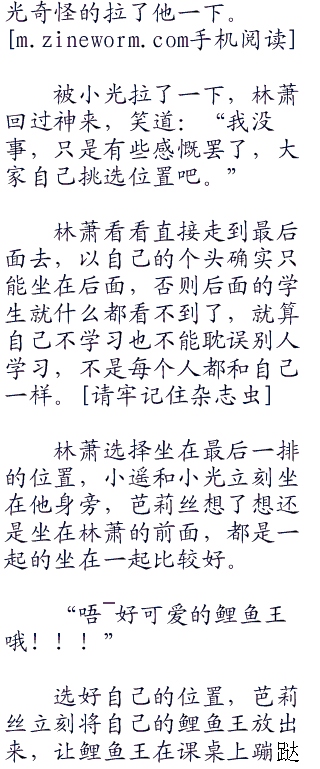 光奇怪的拉了他一下。
[m.zineworm.com手机阅读]
被小光拉了一下，林萧
回过神来，笑道：“我没
事，只是有些感慨罢了，大
家自己挑选位置吧。”
林萧看看直接走到最后
面去，以自己的个头确实只
能坐在后面，否则后面的学
生就什么都看不到了，就算
自己不学习也不能耽误别人
学习，不是每个人都和自己
一样。[请牢记住杂志虫]
林萧选择坐在最后一排
的位置，小遥和小光立刻坐
在他身旁，芭莉丝想了想还
是坐在林萧的前面，都是一
起的坐在一起比较好。
“唔¯好可爱的鲤鱼王
哦！！！”
选好自己的位置，芭莉
丝立刻将自己的鲤鱼王放出
来，让鲤鱼王在课桌上蹦跶